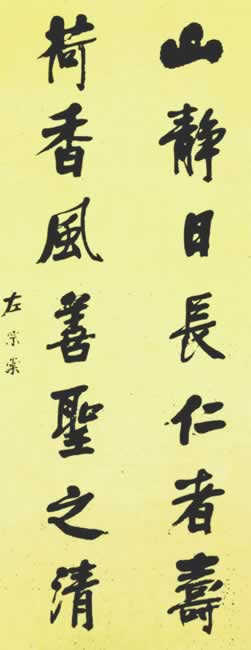 山靜日長仁者壽
荷香風善聖之清
左宗棠